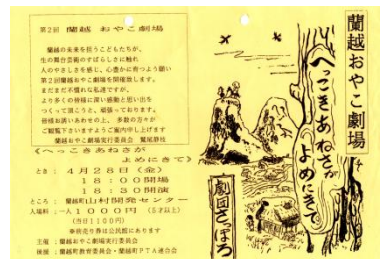 第2回 蘭越 おやこ劇場
蘭越の未来を担うこどもたちが、
生の舞台芸術のすばらしさに触れ
人のやさしさを感じ、心豊かに育つよう願い
第2回蘭越おやこ劇場を開催致します。
まだまだ不慣れな私達ですが、
より多くの皆様に深い感動と思い出を
つくって頂こうと、頑張っております。
皆様お誘いあわせの上、多数の方々が
ご観覧下さいますようご案内申し上げます
蘭越おやこ劇場実行委員会 鷲尾静枝
《へっこきあねさが
よめにきて》
とき : 4月28日(金)
18:00開場
18:30開演
ところ : 蘭越町山村開発センター
入場料 : 一人1000円 (5才以上)
(当日1100円)
※前売り券は公民館にあります
主催 : 蘭越おやこ劇場実行委員会
後援 : 蘭越町教育委員会・蘭越町PTA連合会
蘭越おやこ劇場
へっこきあねさが
よめにきて
劇団さっぽろ